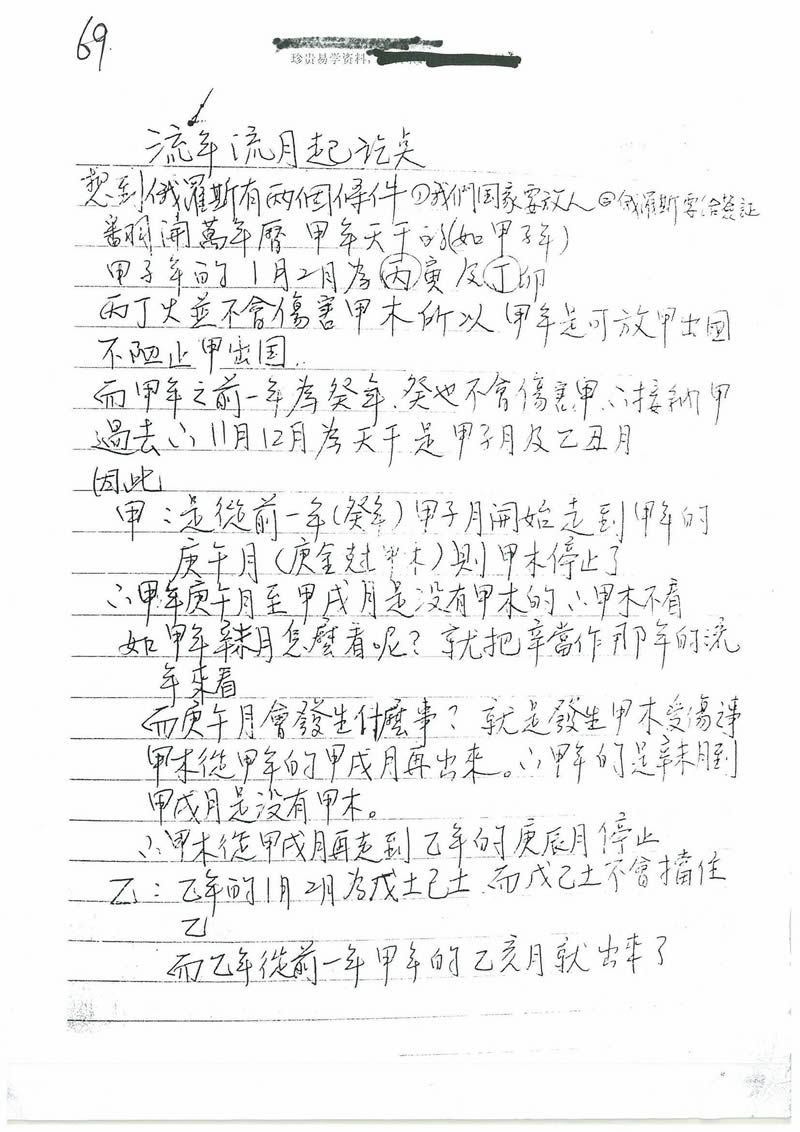 69.
珍贵易学资料,
流年流月起訖矣
想到俄羅斯有两個條件①我們国家要放人②俄羅斯要给簽証
翻開萬年曆 甲年天干的(如甲子年)
甲子年的1月2月為丙寅及丁卯
丙丁火並不會傷害甲木所以 甲年是可放甲出国
不阻止甲出国.
而甲年之前一年為癸年.癸也不會傷害甲∴接納甲
過去∴11月12月為天干是甲子月及乙丑月
因此
甲:是從前一年(癸年)甲子月開始走到甲年的
庚午月(庚金尅甲木)則甲木停止了
∴甲年庚午月至甲戌月是没有甲木的∴甲木不看
如甲年辛未月怎麼看呢?就把辛當作那年的流
年來看
而庚午月會發生什麼事?就是發生甲木受傷事
甲木從甲年的甲戌月再出來。∴甲年的是辛未月到
甲戌月是没有甲木。
∴甲木從甲戌月再走到乙年的庚辰月停止
乙:乙年的1月2月為戊土己土.而戊己土不會擋住
乙
而乙年從前一年甲年的乙亥月就出來了